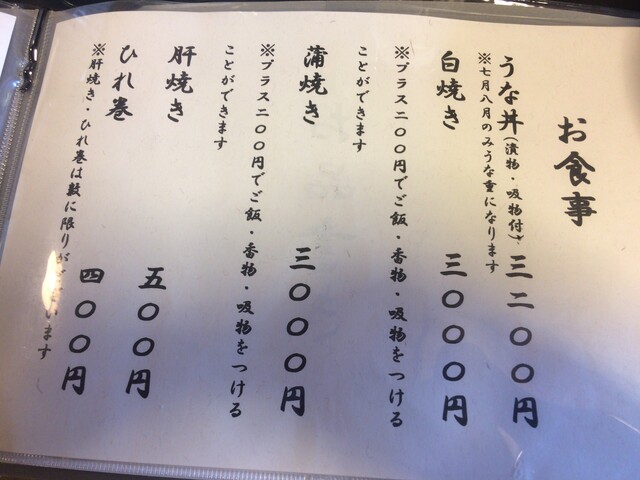 お食事
うな丼(漬物・吸物付) 三二〇〇円
※七月八月のみうな重になります
白焼き 三〇〇〇円
※プラス二〇〇円でご飯・香物・吸物をつける
ことができます
蒲焼き 三〇〇〇円
※プラス二〇〇円でご飯・香物・吸物をつける
ことができます
肝焼き 五〇〇円
ひれ巻 四〇〇円
※肝焼き・ひれ巻は数に限りがございます